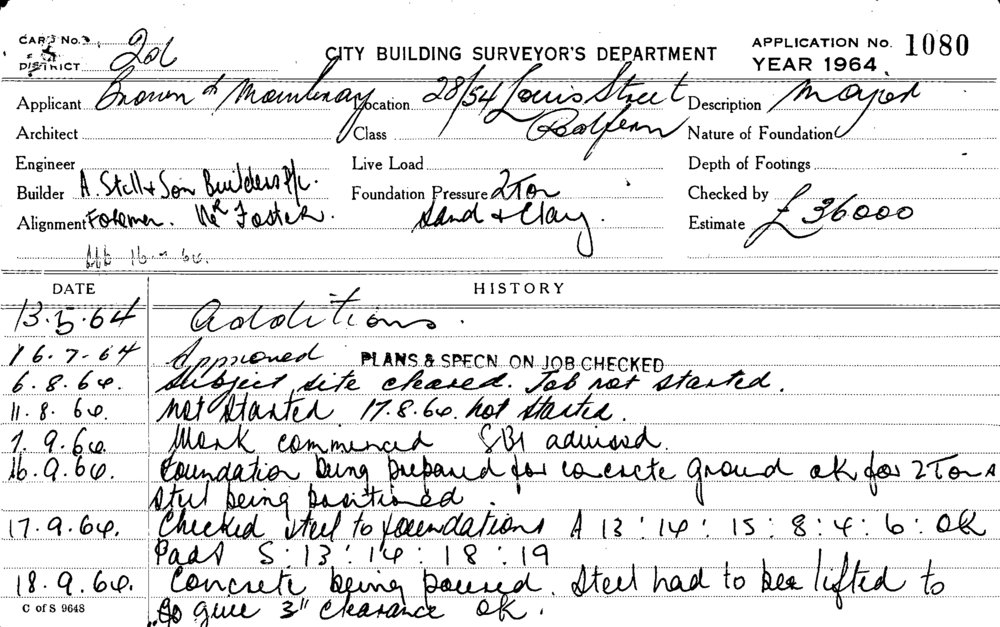 CARD No.
DISTRICT 20b
CITY BUILDING SURVEYOR'S DEPARTMENT
APPLICATION No. 1080
YEAR 1964
Applicant Brown & Location 28/54 Louis Street Description Major
Architect Class Redfern Nature of Foundation
Engineer Live Load Depth of Footings
Builder A. Stell & Son Builders P/L. Foundation Pressure 2 Ton Checked by
Alignment Foreman. Mr Foster. Sand & Clay. Estimate £36000
16-7-64.
DATE HISTORY
13.5.64 Additions.
16-7-64 Approved PLANS & SPECN. ON JOB CHECKED
6.8.64. Subject site cleared. Job not started.
11.8.64. Not Started 17.8.64. not started.
7.9.64. Work commenced SBI advised.
16.9.64. Foundation being prepared for concrete ground ok for 2 Tons
Steel being positioned.
17.9.64. Checked steel to foundations A 13 : 14 : 15 : 8 : 4 : 6 : OK
Pads S : 13 : 14 : 18 : 19
18.9.64. Concrete being poured. Steel had to be lifted to
C of S 9648 give 3" clearance ok.